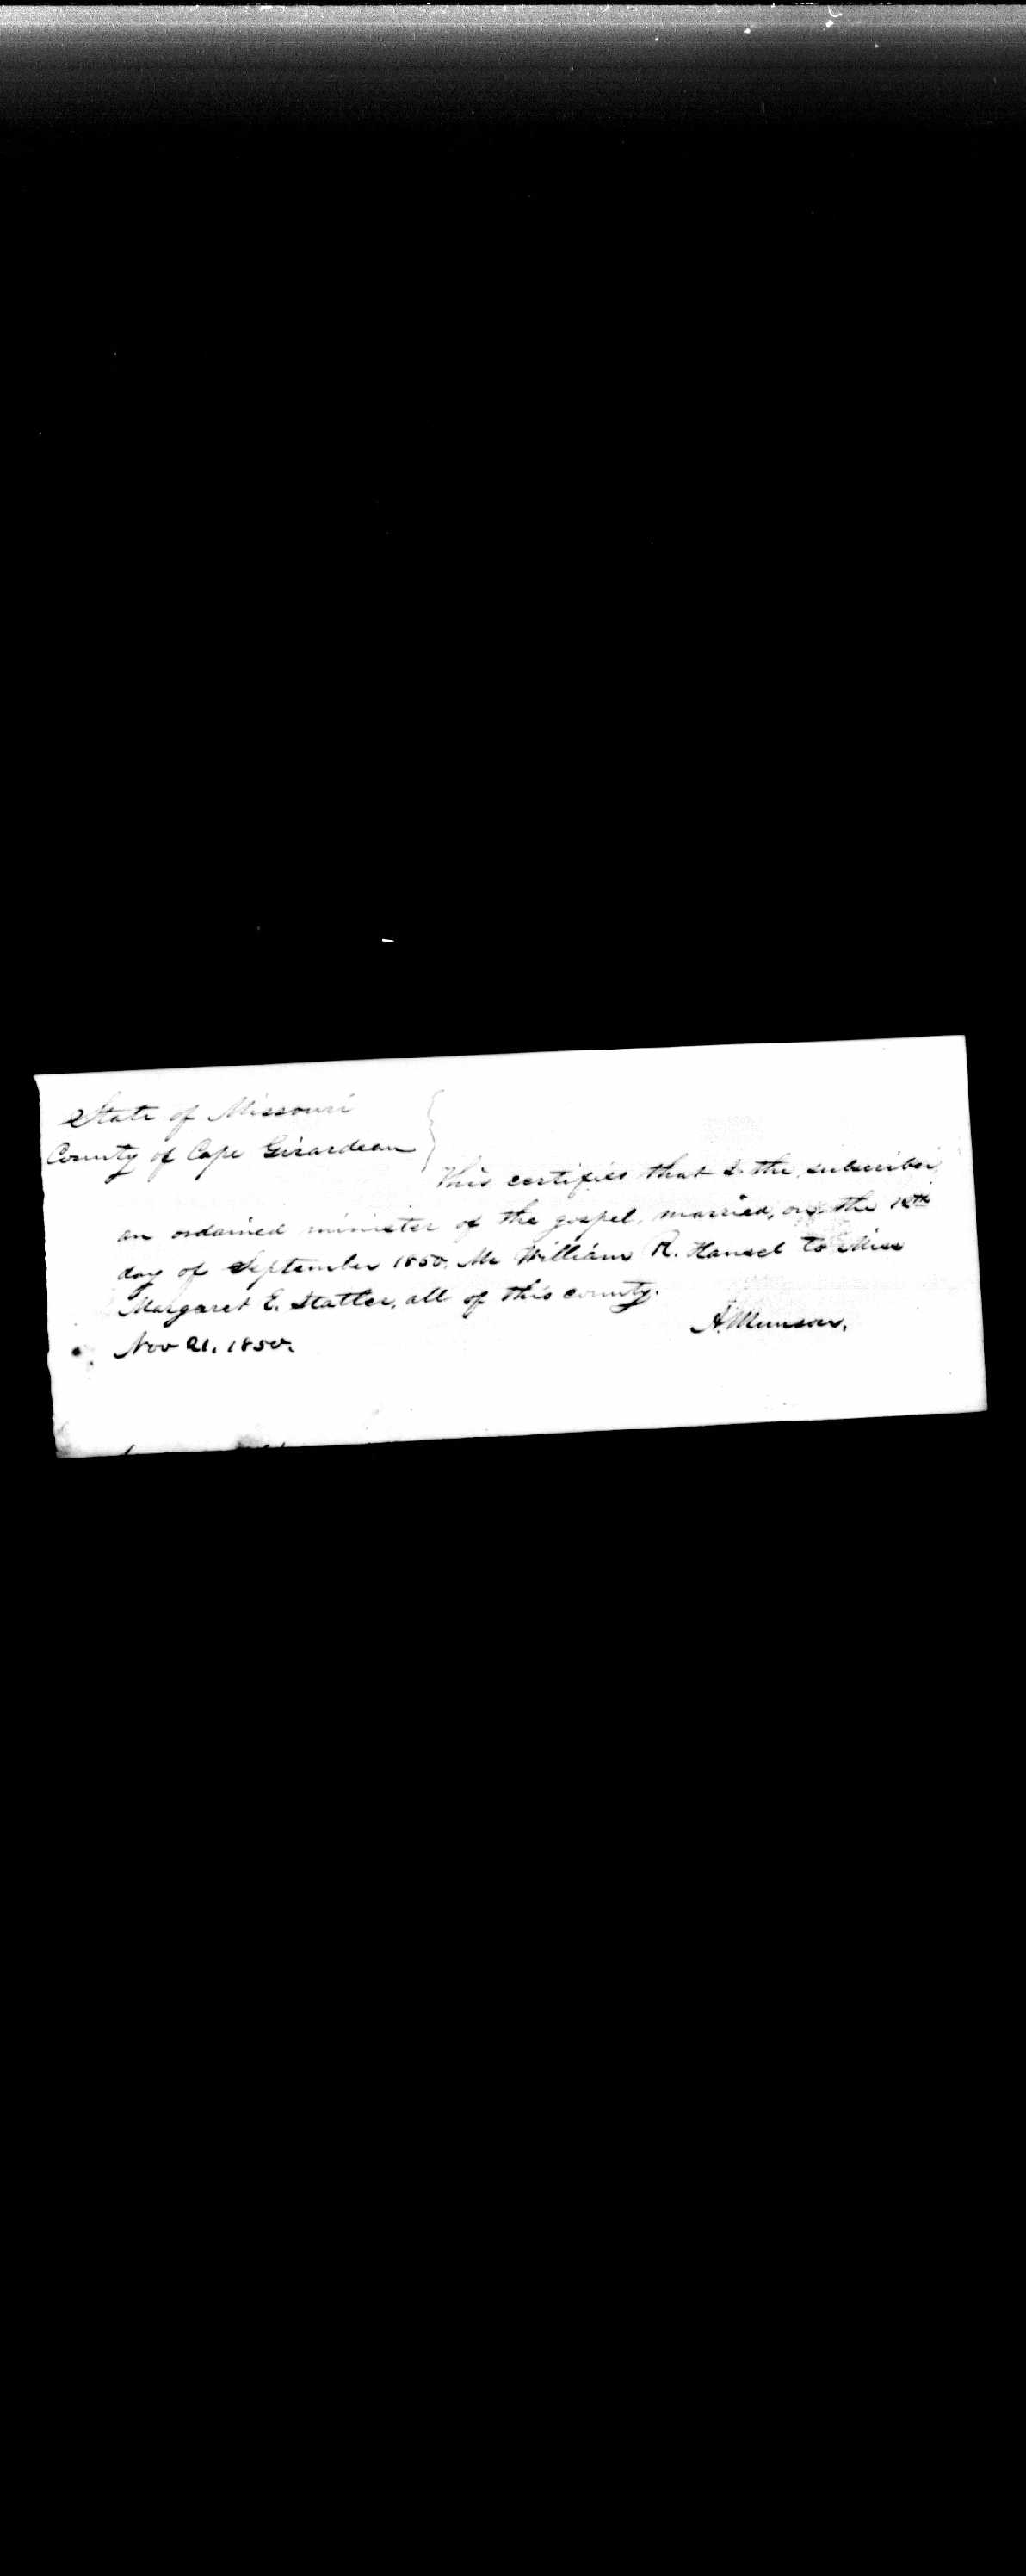 State of Missouri
County of Cape Girardeau }
This certifies that I the subscriber,
an ordained minister of the gospel, married, on the 12th
day of September 1850, Mr William R. Hansel to Miss
Margaret E. Statler, all of this county.
A. Munson.
Nov 21. 1850.